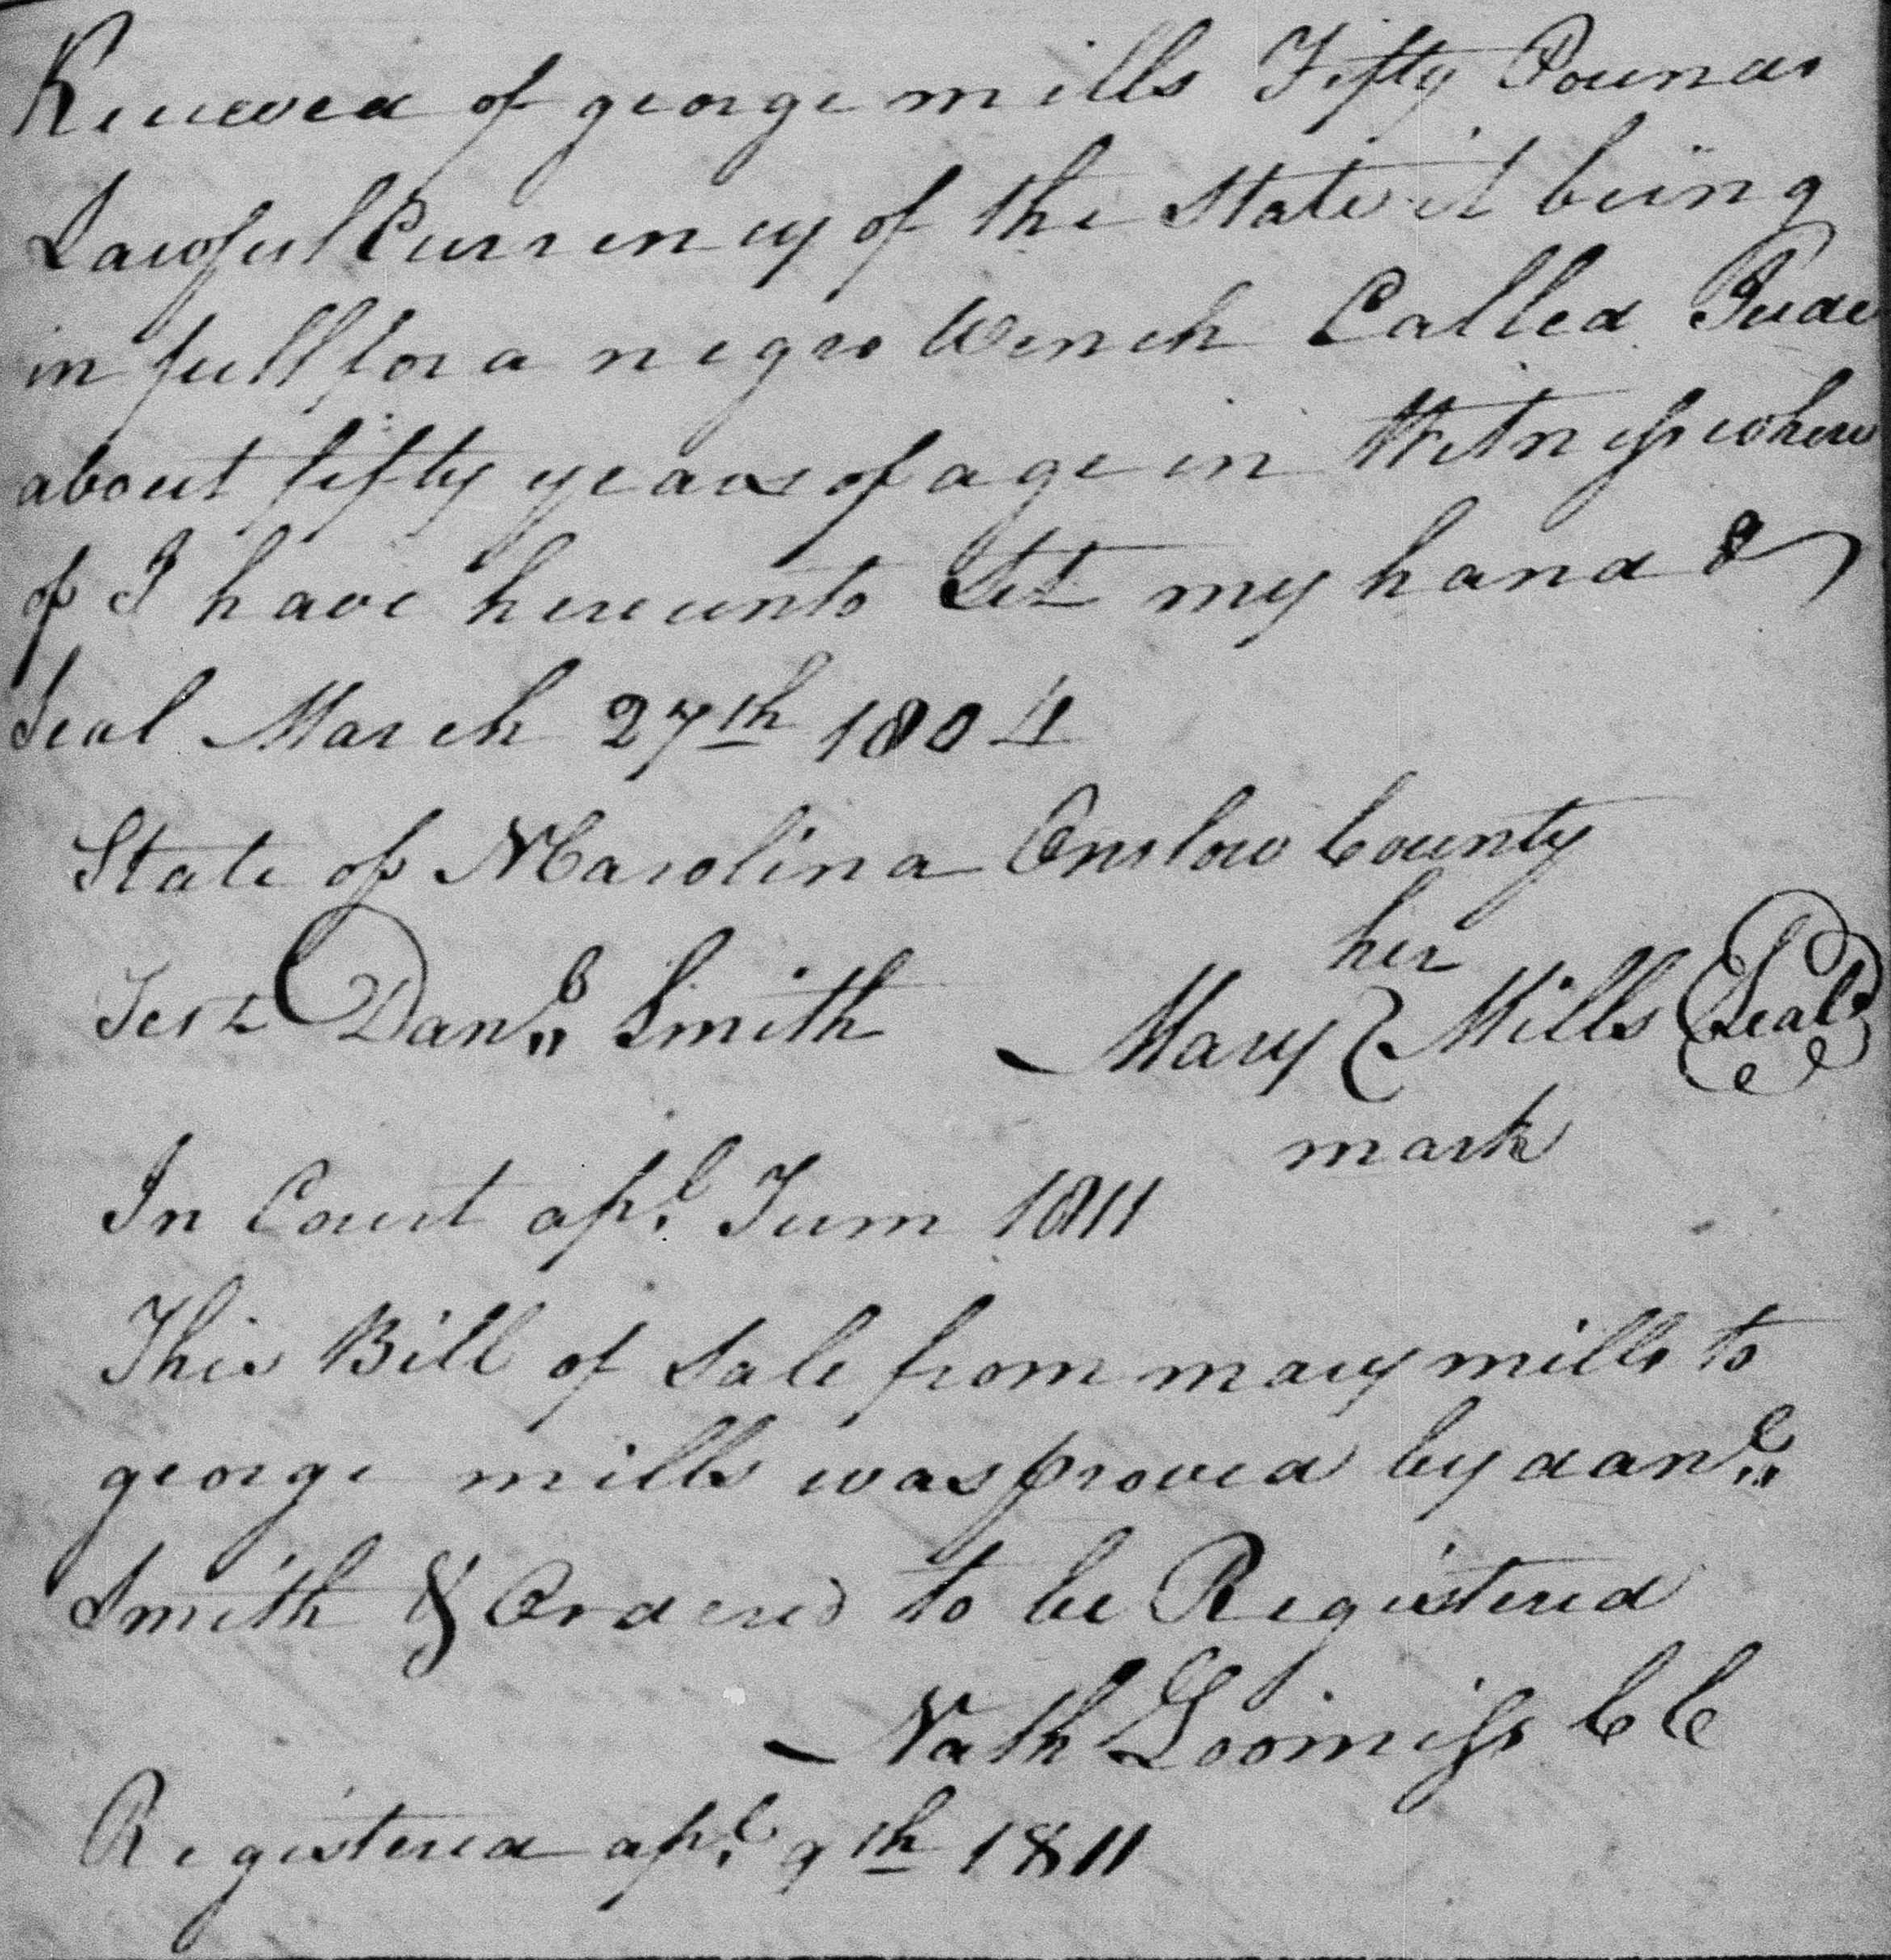 Received of george mills Fifty Pounds
Lawful Currency of the State it being
in full for a negro Wench Called Jude
about fifty years of age in Witness where
of I have hereunto Set my hand &
Seal March 27th 1804
State of NCarolina Onslow County
her
Test Danl Smith Mary Mills Seal
mark
In Court apl Turm 1811
This Bill of Sale from mary mills to
george mills was proved by danl
Smith & Ordered to be Registered
Nath Loomiss CC
Registered apl 9th 1811